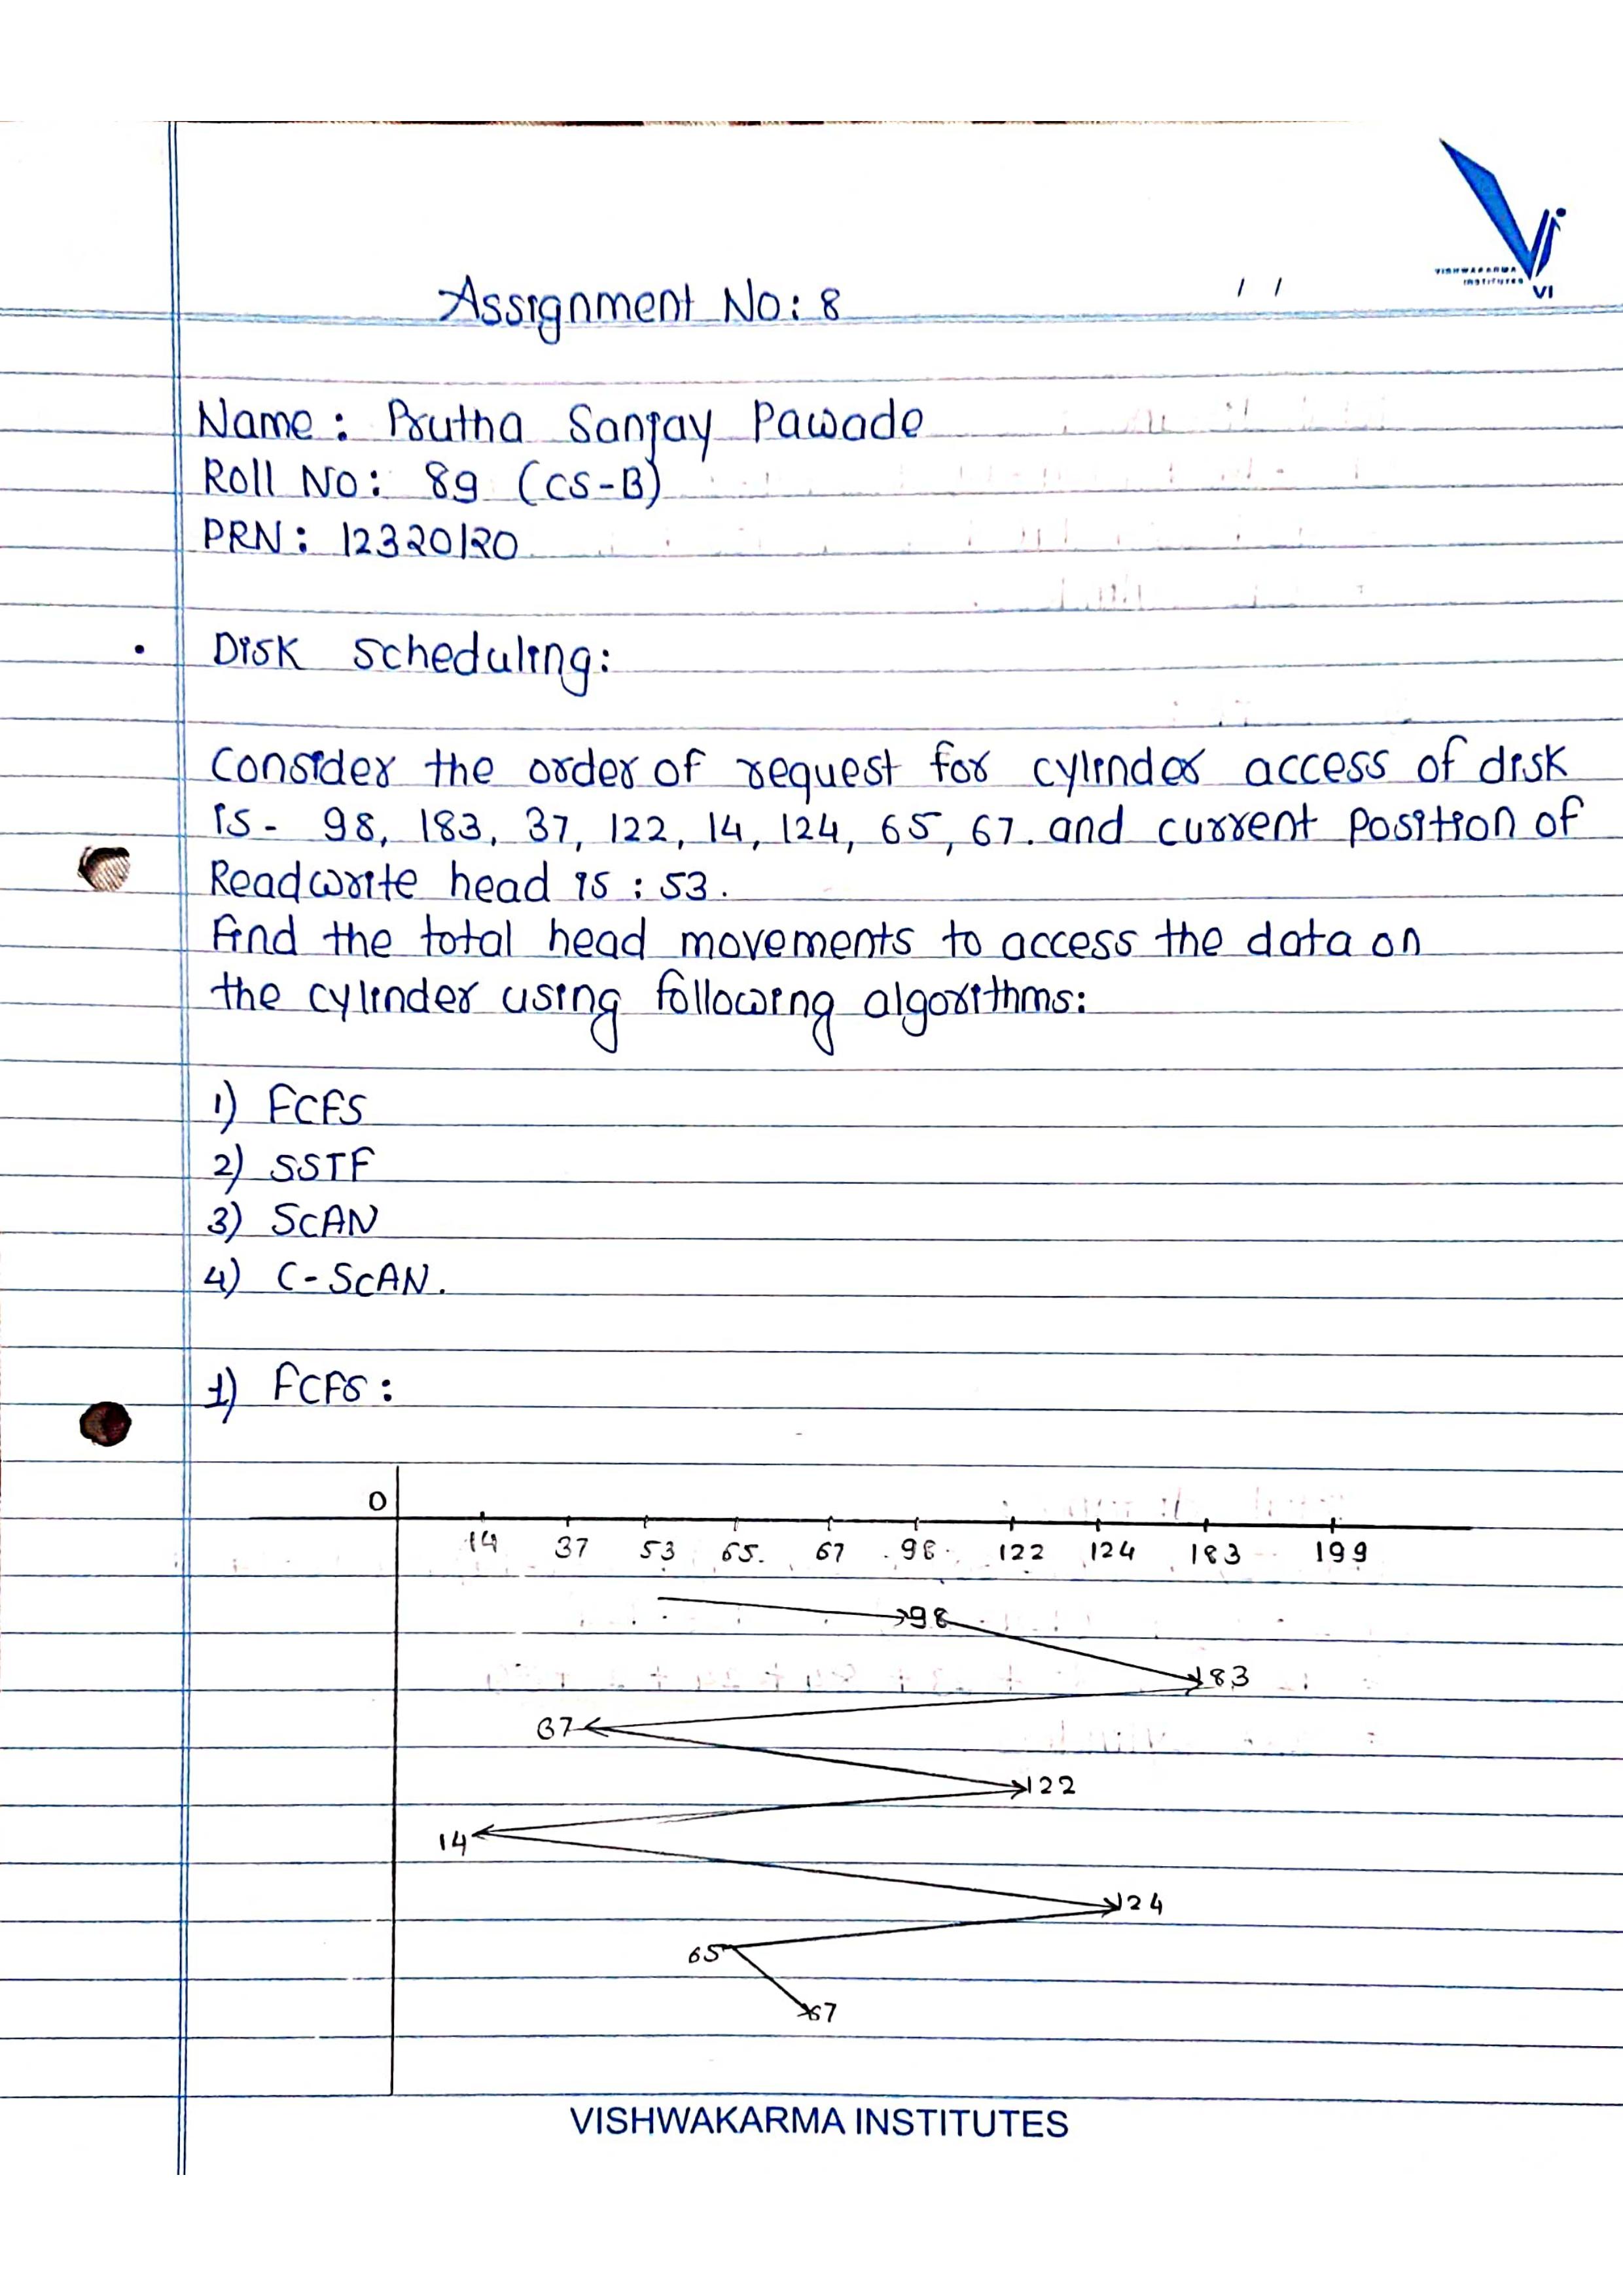 VISHWAKARMA
INSTITUTES VI
Assignment No: 8 / /
Name: Prutha Sanjay Pawade
Roll No: 89 (CS-B)
PRN: 12320120
• Disk Scheduling:
Consider the order of request for cylinder access of disk
is - 98, 183, 37, 122, 14, 124, 65, 67. and current position of
Readwrite head is: 53.
Find the total head movements to access the data on
the cylinder using following algorithms:
1) FCFS
2) SSTF
3) SCAN
4) C-SCAN.
1) FCFS:
0
14 37 53 65 67 98 122 124 183 199
98
183
37
122
14
124
65
67
VISHWAKARMA INSTITUTES